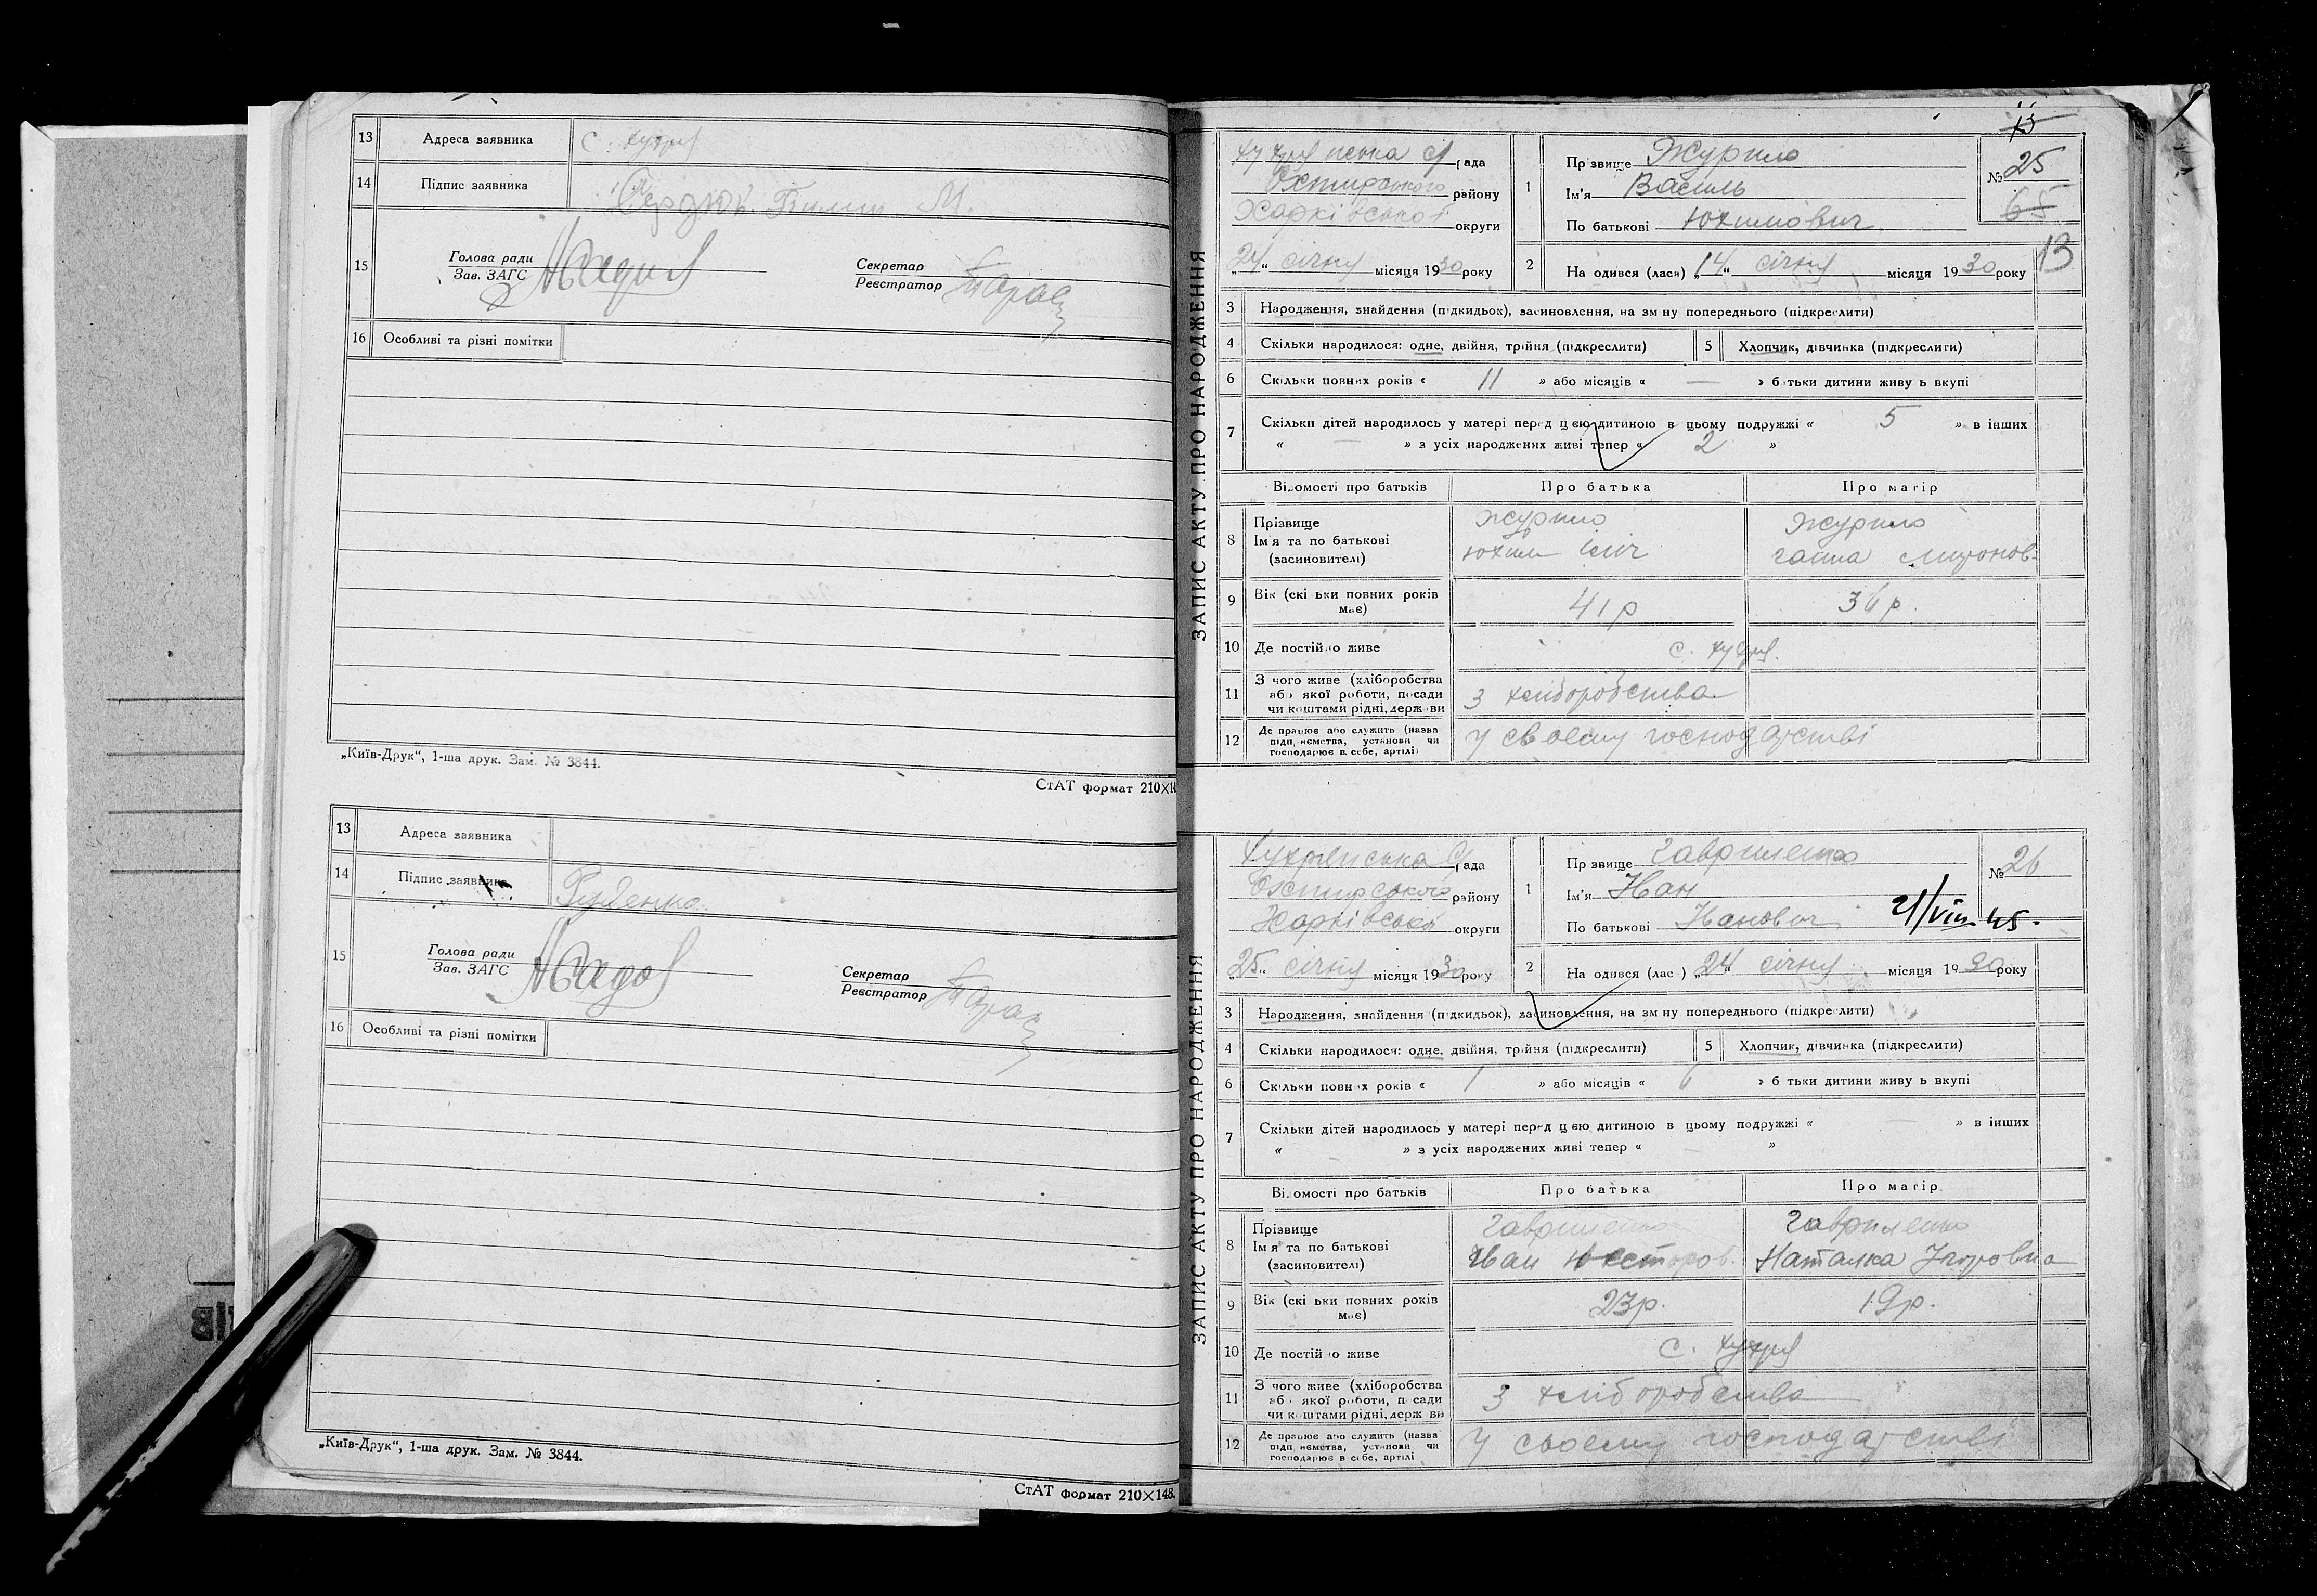 13 Адреса заявника с. Хухря
14 Підпис заявника Сердюк М.
15 Голова ради
Зав. ЗАГС
Секретар
Реєстратор
16 Особливі та різні помітки
„Київ-Друк“, 1-ша друк. Зам. № 3844.
СтАТ формат 210×14
13 Адреса заявника
14 Підпис заявника Руденко
15 Голова ради
Зав. ЗАГС
Секретар
Реєстратор
16 Особливі та різні помітки
„Київ-Друк“, 1-ша друк. Зам. № 3844.
СтАТ формат 210×148.
ЗАПИС АКТУ ПРО НАРОДЖЕННЯ
15
Хухрянська с/рада
Охтирського району
Харківської округи
„24“ січня місяця 1930 року
1 Прізвище Журило
Ім'я Василь
По батькові Юхимович
№ 25
65
13
2 На одився (лася) „14“ січня місяця 1930 року
3 Народження, знайдення (підкидьок), засиновлення, на зм ну попереднього (підкреслити)
4 Скільки народилося: одне, двійня, трійня (підкреслити)
5 Хлопчик, дівчинка (підкреслити)
6 Скільки повних років « 11 » або місяців « — » б тьки дитини живу ь вкупі
7 Скільки дітей народилось у матері перед цією дитиною в цьому подружжі « 5 » в інших
« — » з усіх народжених живі тепер « 2 »
Відомості про батьків Про батька Про матір
8 Прізвище Журило Журило
Ім'я та по батькові Юхим Ілліч Ганна Миронов-
(засиновителі)
9 Вік (скі ьки повних років має) 41 р 36 р.
10 Де постійно живе с. Хухря.
11 З чого живе (хліборобства
або якої роботи, посади
чи коштами рідні, держ ви
З хліборобства
12 Де працює або служить (назва
підп иємства, установи чи
господарює в себе, артілі)
У своєму господарстві
ЗАПИС АКТУ ПРО НАРОДЖЕННЯ
Хухрянська с/рада
Охтирського району
Харківської округи
„25“ січня місяця 1930 року
1 Прізвище Гавриленко
Ім'я Іван
По батькові Іванович
№ 26
21/VIII 45.
2 На одився (лас ) „24“ січня місяця 1930 року
3 Народження, знайдення (підкидьок), засиновлення, на зм ну попереднього (підкреслити)
4 Скільки народилося: одне, двійня, трійня (підкреслити)
5 Хлопчик, дівчинка (підкреслити)
6 Скільки повних років « 1 » або місяців « 6 » б тьки дитини живу ь вкупі
7 Скільки дітей народилось у матері перед цією дитиною в цьому подружжі « — » в інших
« » з усіх народжених живі тепер « — »
Ві омості про батьків Про батька Про матір
8 Прізвище Гавриленко Гавриленко
Ім'я та по батькові Іван Нестеров. Наталка
(засиновителі)
9 Вік (скі ьки повних років має) 23 р. 19 р.
10 Де постій о живе с. Хухря
11 З чого живе (хліборобства
аб якої роботи, п сади
чи к штами рідні, держ ви
З хліборобства
12 Де працює або служить (назва
підп иємства, установи чи
господарює в себе, артілі
У своєму господарстві